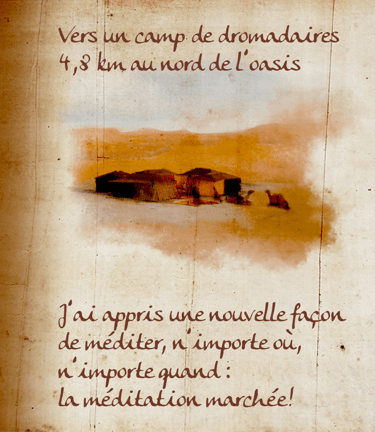 Vers un camp de dromadaires
4,8 km au nord de l'oasis
J'ai appris une nouvelle façon
de méditer, n'importe où,
n'importe quand :
la méditation marchée!